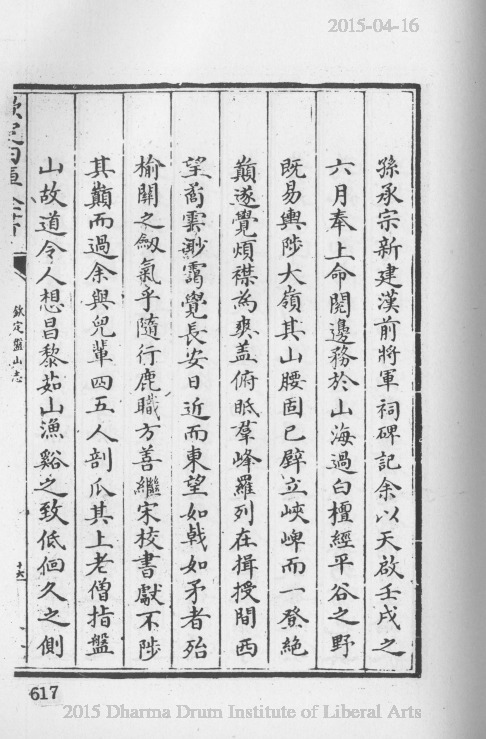 2015-04-16
孫承宗新建漢前將軍祠碑記余以天啟壬戌之
六月奉上命閱邊務於山海過白檀經平谷之野
既易輿陟大嶺其山腰固已壁立峽崥而一登絶
巔遂覺煩襟為爽盖俯眎羣峰羅列在揖授間西
望矞雲鄣靄覺長安日近而東望如戟如矛者殆
榆關之劒氣乎隨行鹿職方善繼宋校書獻不陟
其巔而過余與兒輩四五人剖瓜其上老僧指盤
山故道令人想昌黎茹山漁谿之致低佪久之側
欽定四庫全書
欽定盤山志
十六
617
2015 Dharma Drum Institute of Liberal Arts